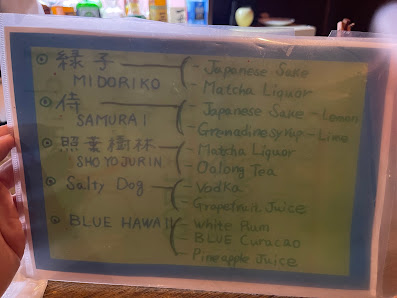 緑子 - Japanese Sake
MIDORIKO - Matcha Liquor
侍 - Japanese Sake - Lemon
SAMURAI - Grenadine syrup - Lime
照葉樹林 - Matcha Liquor
SHOYOJURIN - Oolong Tea
Salty Dog - Vodka
- Grapefruit Juice
BLUE HAWAII - White Rum
- BLUE Curacao
- Pineapple Juice